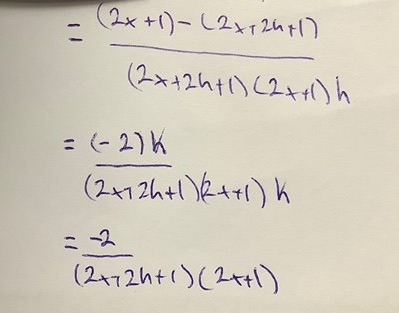 = (2x+1)-(2x+2h+1)
(2x+2h+1)(2x+1)h
= (-2)h
(2x+2h+1)(2x+1)h
= -2
(2x+2h+1)(2x+1)